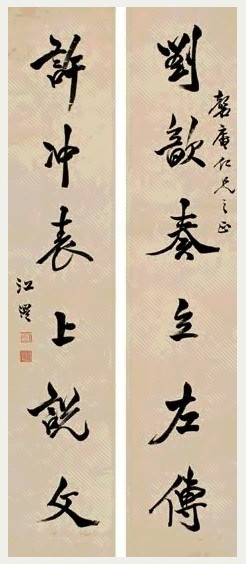 劉歆奏立左傳
許沖表上說文
仁兄之正
江